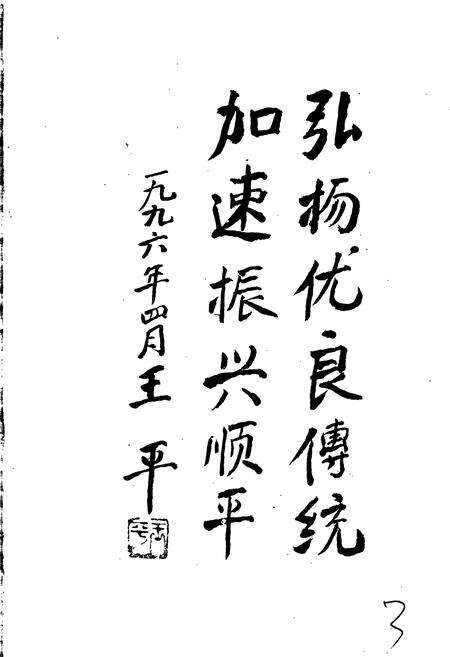 弘扬优良傳统
加速振兴顺平
一九九六年四月王平
3